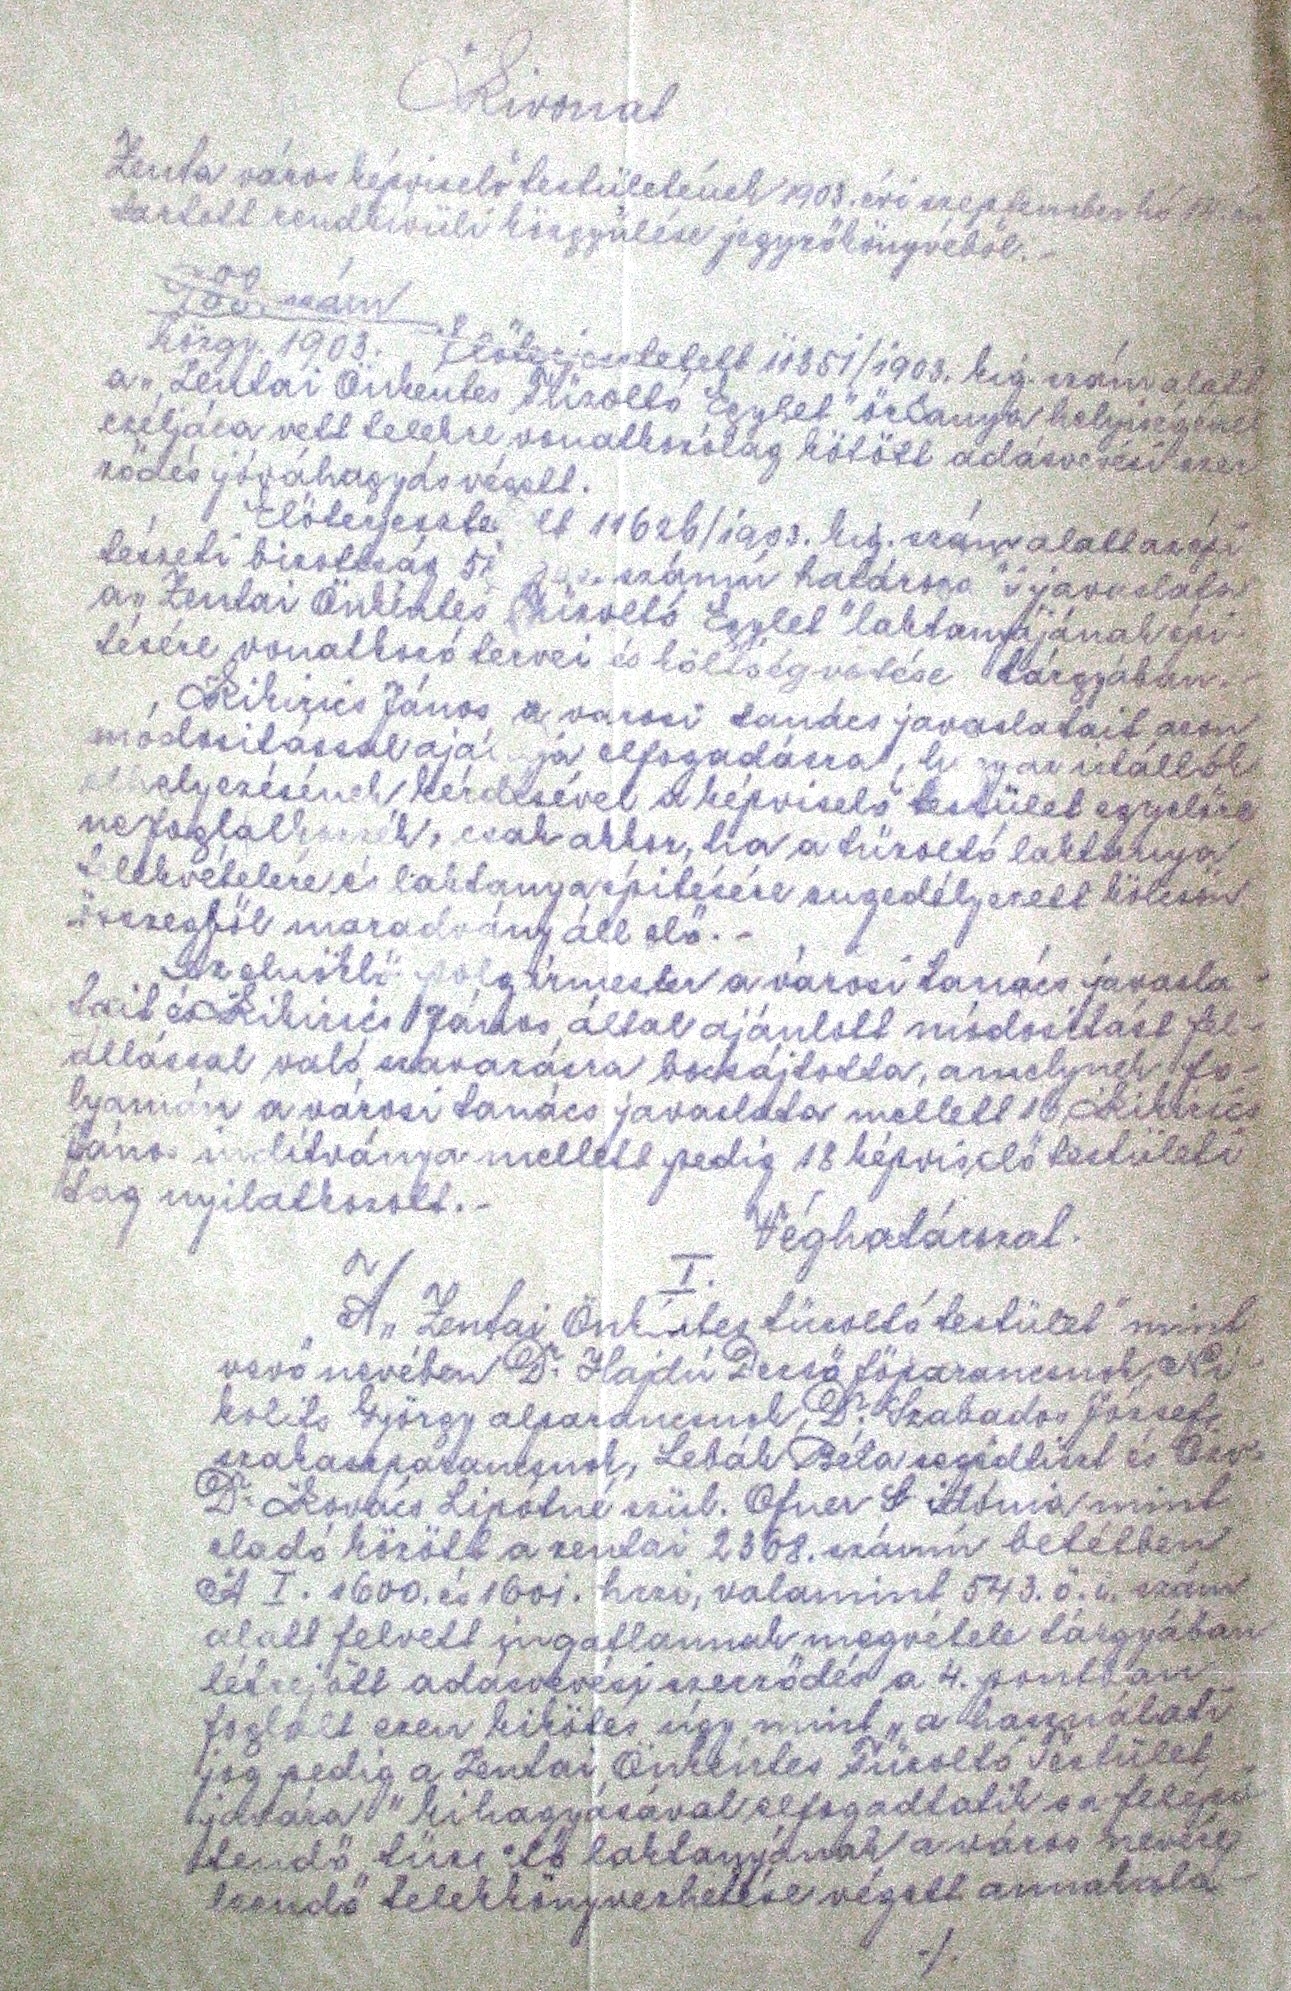 Kivonat
Zenta város képviselő testületének 1903. évi szeptember hó
tartott rendkivüli közgyülése jegyzőkönyvéből.-
szám
közgy. 1903. Előterjesztetett 11351/1903. kig. szám alatt
a „Zentai Önkentes Tűzoltó Egylet" őrtanya helyiségének
céljára vett telekre vonatkozólag kötött adásvevési szer
ződés jóváhagyás végett.
Előterjeszte tt 11626/1903. kig. szám alatt az épi
tészeti bizottság számú határoza i javaslata
a „Zentai Önkéntes Tűzoltó Egylet" laktanyájának épi
tésére vonatkozó tervei és költségvetése tárgyában.-
Kikirics János a városi tanács javaslatait azon
módositással ajá ja elfogadásra, h gy az istállók
elhelyezésének kérdésével a képviselő testület egyelőre
ne foglalkozzék, csak akkor, ha a tüzoltó laktanya
telekvételére és laktanya épitésére engedélyezett kölcsön
összegből maradvány áll elő.-
Az elnöklő polgármester a városi tanács javasla-
tait és Kikirics János által ajánlott módositást fel-
állással való szavazásra bocsájtotta, amelynek fo-
lyamán a városi tanács javaslata mellett 16 Kikirics
János inditványa mellett pedig 18 képviselő testületi
tag nyilatkozott.-
Véghatározat.
I.
A „Zentai Önkéntes tüzoltó testület" mint
vevő nevében Dr. Hajdú Dezső főparancsnok, Ni
kolits György alparancsnok, Dr. Szabados József
szakaszparancsnok, Lebák Béla segédtiszt és Özv.
Dr. Kovács Lipótné szül. Ofner mint
eladó között a zentai 2368. számú betétben
A I. 1600. és 1601. hrzi, valamint 543. ö. i. szám
alatt felvett ingatlannak megvétele tárgyában
létrejött adásvevési szerződés a 4. pontban
foglalt ezen kikötés úgy mint „a használati
jog pedig a Zentai Önkéntes Tűzoltó Testület
javára" kihagyásával elfogadtatik s a felépi
tendő tüzo tó laktanyának a város nevére
leendő telekkönyvezhetése végett annak ala-
-/.